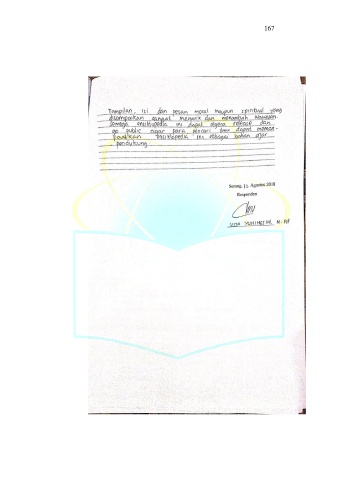 167
Tampilan, isi dan pesan moral maupun spiritual yang
disampaikan sangat menarik dan menambah wawasan.
Semoga ensiklopedia ini dapat segera terbit dan
go public agar para pencari ilmu dapat meman-
faatkan ensiklopedia ini sebagai bahan ajar
pendukung.
Serang, 13 Agustus 2018
Responden
M. Pd